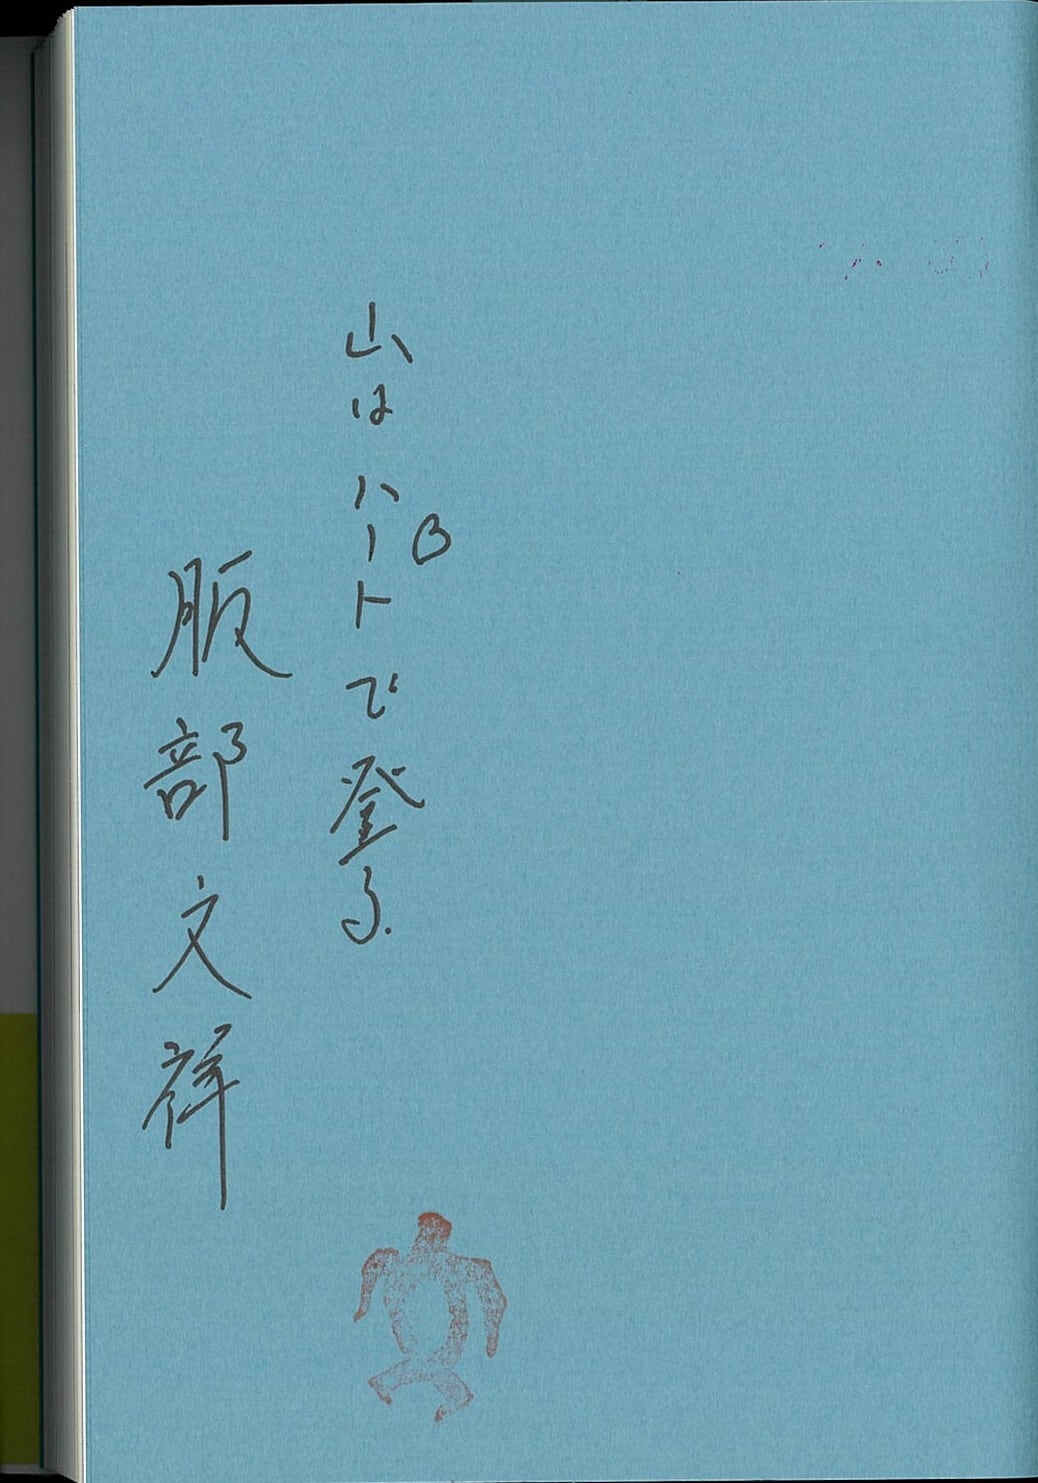 山はハートで登る。
服部文祥